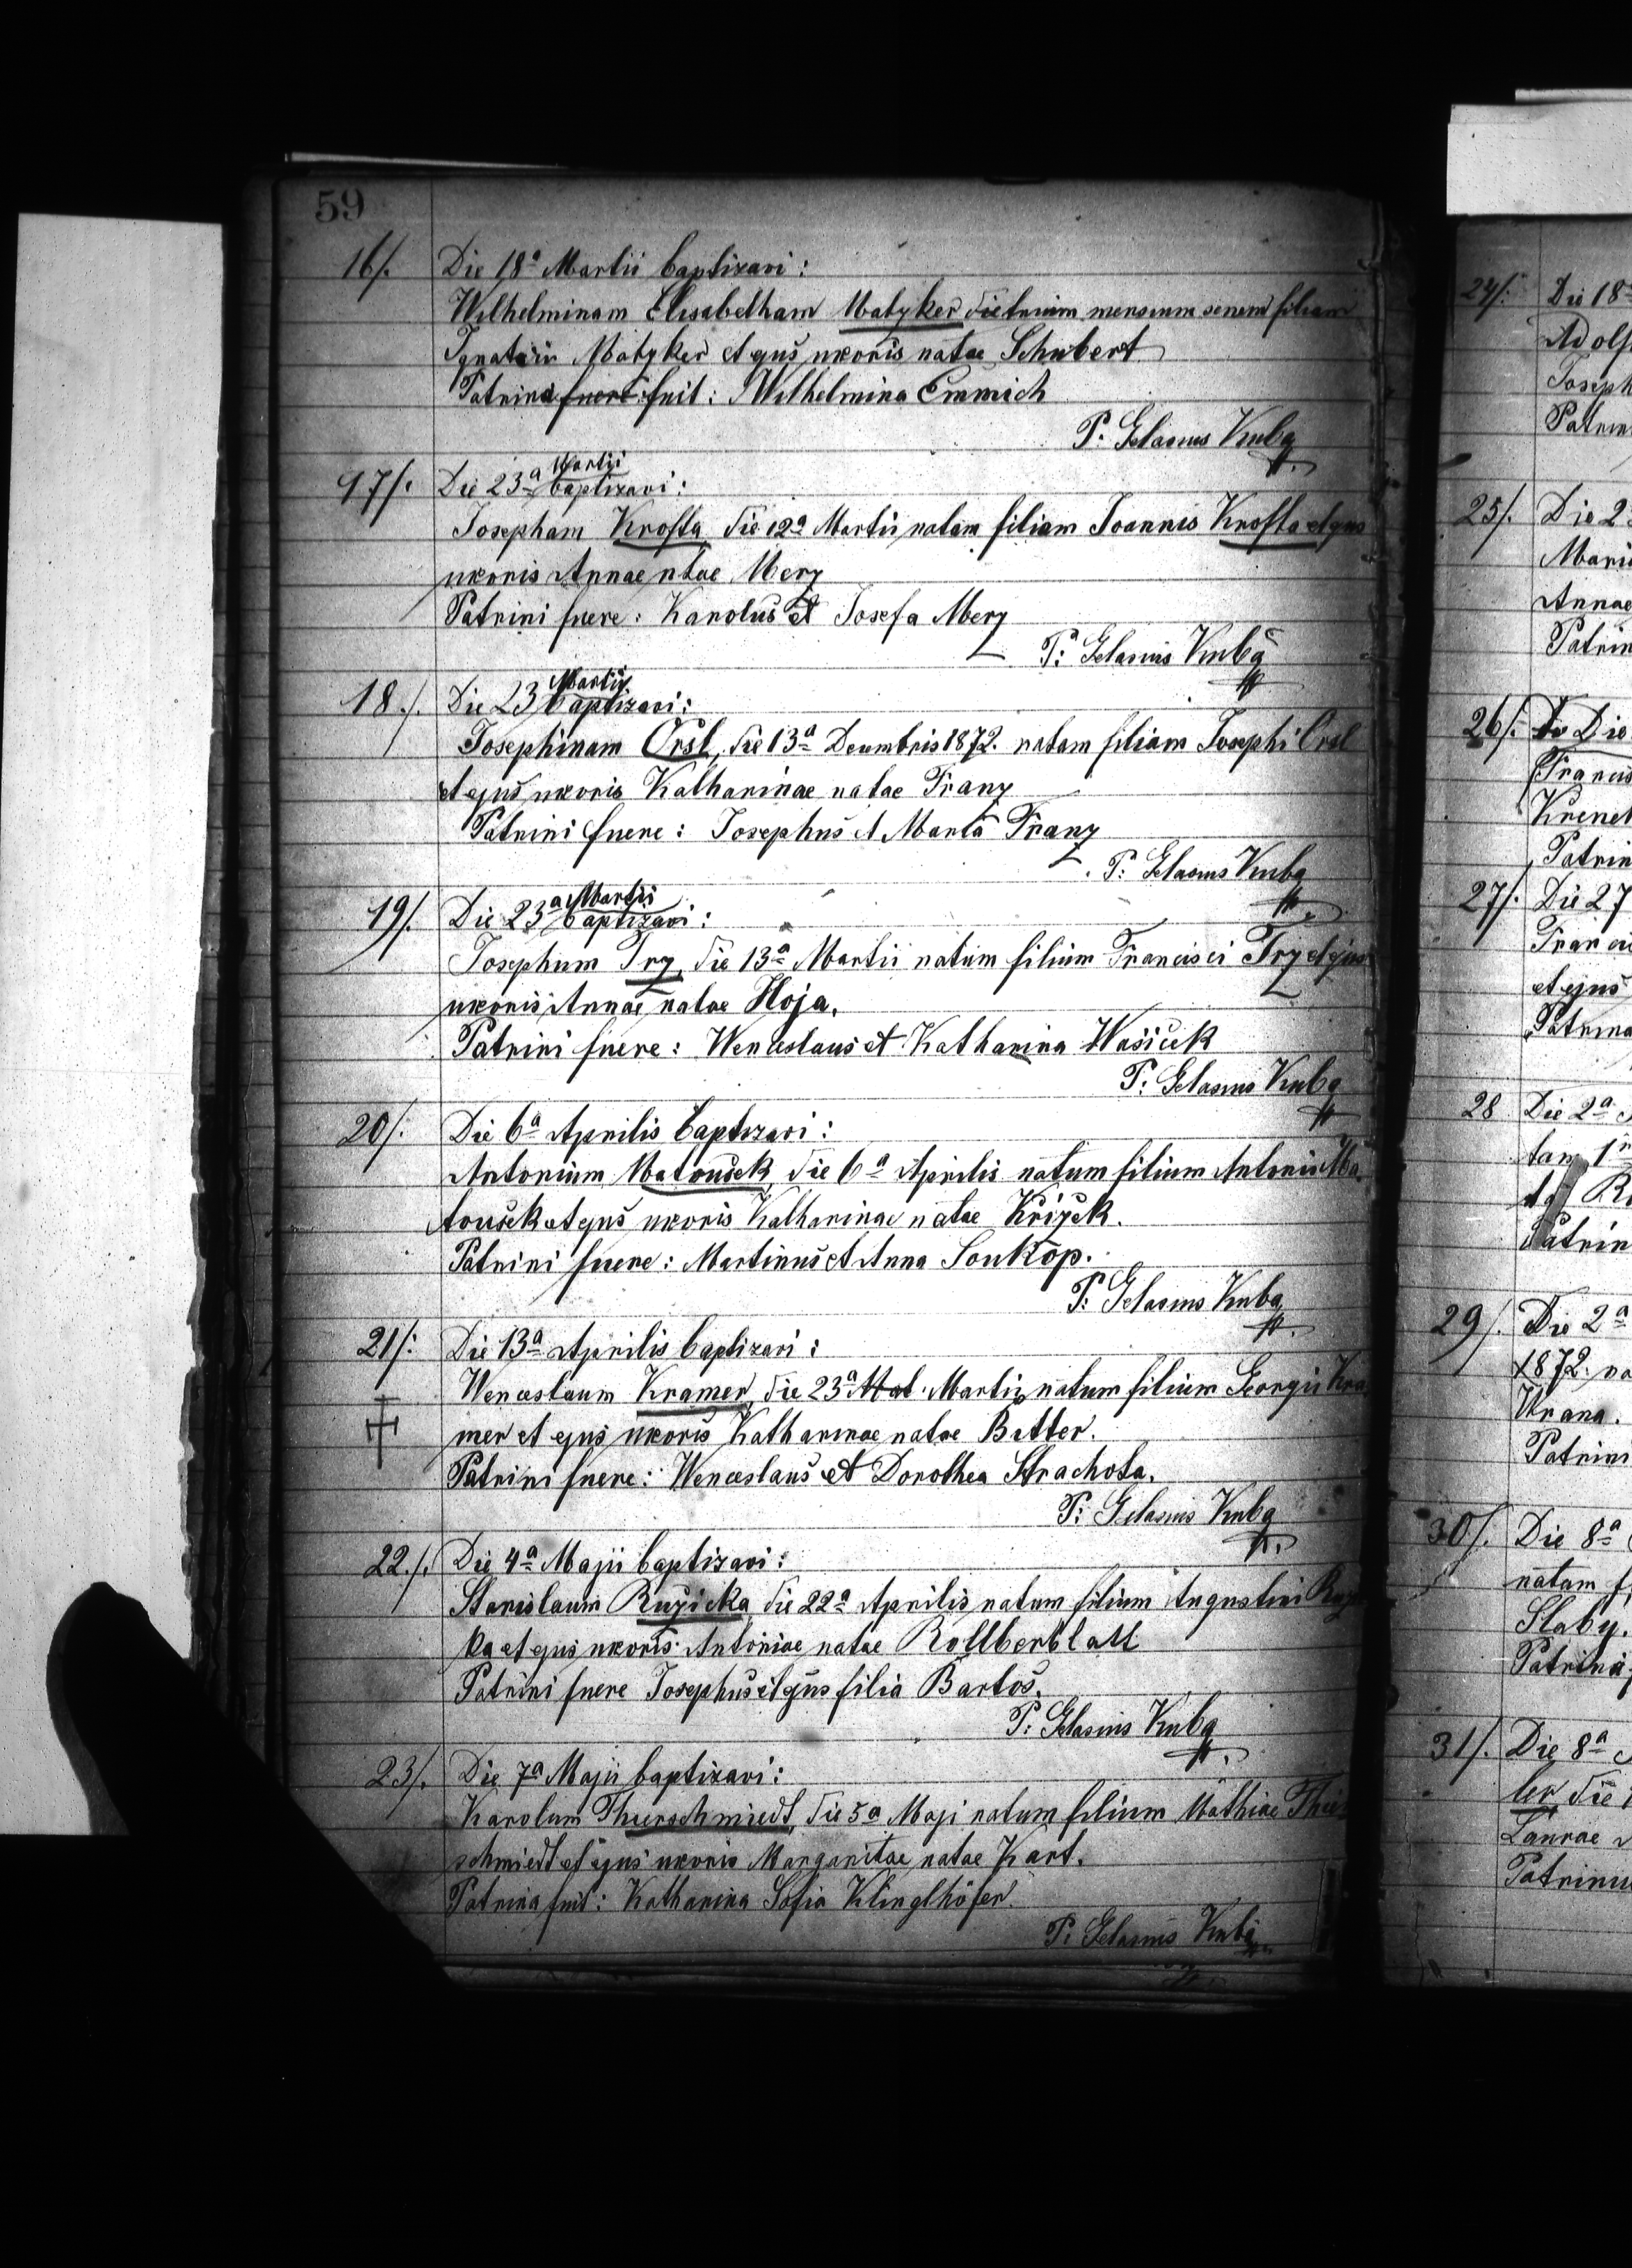 59
16/. Die 18a Martii baptizavi:
Wilhelminam Elisabetham Matyker die trium mensium senem filiam
Ignatii Matyker et ejus uxoris natae Schubert
Patrina fuere fuit: Wilhelmina Emmich
P. Gelasius Kuba
17/. Die 23a Martii baptizavi:
Josepham Krofta, die 12a Martii natam filiam Joannis Krofta et ejus
uxoris Annae ntae Merz
Patrini fuere: Karolus et Josefa Merz
P: Gelasius Kuba
18./. Die 23 Martii baptizavi:
Josephinam Orsl, die 13a Decembris 1872. natam filiam Josephi Orsl
et ejus uxoris Katharinae natae Franz
Patrini fuere: Josephus et Maria Franz
P: Gelasius Kuba
19/. Die 23a Martii baptizavi:
Josephum Trz, die 13a Martii natum filium Francisci Trz et ejus
uxoris Annae natae Hoja.
Patrini fuere: Wenceslaus et Katharina Wašiček
P: Gelasius Kuba
20/. Die 6a Aprilis baptizavi:
Antonium Matoušek, die 6a Aprilis natum filium Antonii Ma
toušek et ejus uxoris Katharinae natae Křižek.
Patrini fuere: Martinus et Anna Soukop.
P: Gelasius Kuba
21/: Die 13a Aprilis baptizavi:
Wenceslaum Kramer, die 23a Mat Martii natum filium Georgii Kra
mer et ejus uxoris Katharinae natae Bitter.
Patrini fuere: Wenceslaus et Dorothea Strachota.
P: Gelasius Kuba
22./. Die 4a Majii baptizavi:
Stanislaum Ružicka, die 22a Aprilis natum filium Augustini
ka et ejus uxoris Antoniae natae Rollberblatt
Patrini fuere Josephus et ejus filia Bartoš.
P: Gelasius Kuba
23/. Die 7a Majii baptizavi:
Karolum Thierschmiedt, die 5a Maji natum filium Mathiae Thier
schmiedt et ejus uxoris Margaritae natae Kart.
Patrina fuit: Katharina Sofia Klinglhöfer.
P: Gelasius Kuba
24/: Die 18
Adolf
Joseph
Patrin
25/. Die 2
Mari
Annae
Patrin
26/. Die
Francis
Krenek
Patrin
27/. Die 27
Franci
et ejus
Patrina
28 Die 2a
tam 1
Patrin
29/. Die 2a
1872. na
Wrana.
Patrini
30/. Die 8a
natam f
Slaby.
Patrina
31/. Die 8a
ler die
Laurae
Patrinu